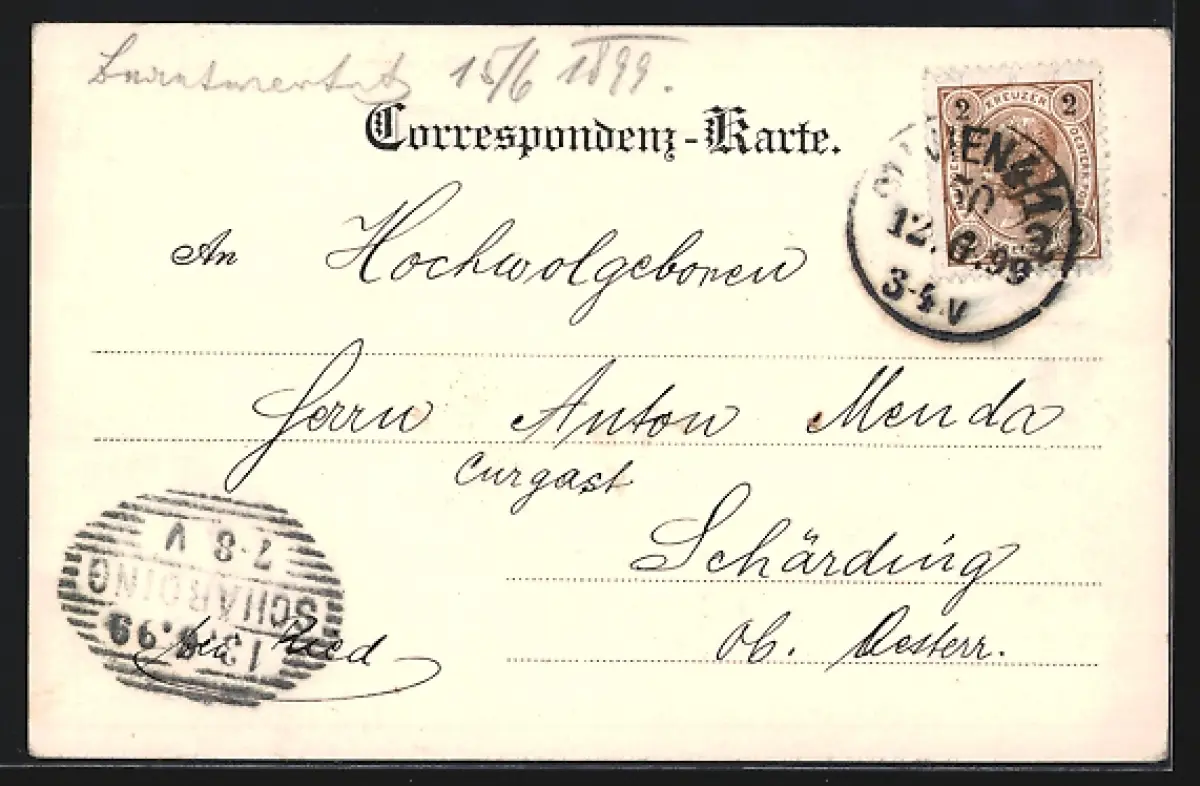 Beantwortet 15/6 1899.
Correspondenz-Karte.
2 KREUZER 2
WIEN 4/1
50
12.6.99
3-4.V
An Hochwolgeboren
Herrn Anton Menda
Curgast
Schärding
ob. Oesterr.
bei Ried
13.6.99
SCHÄRDING
7-8 V